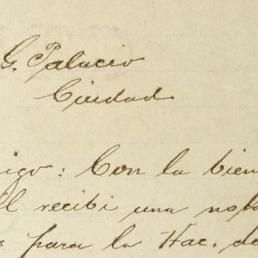 G. Palacio
Ciudad
igo: Con la bien
El recibí una nota
s para la Hac. de